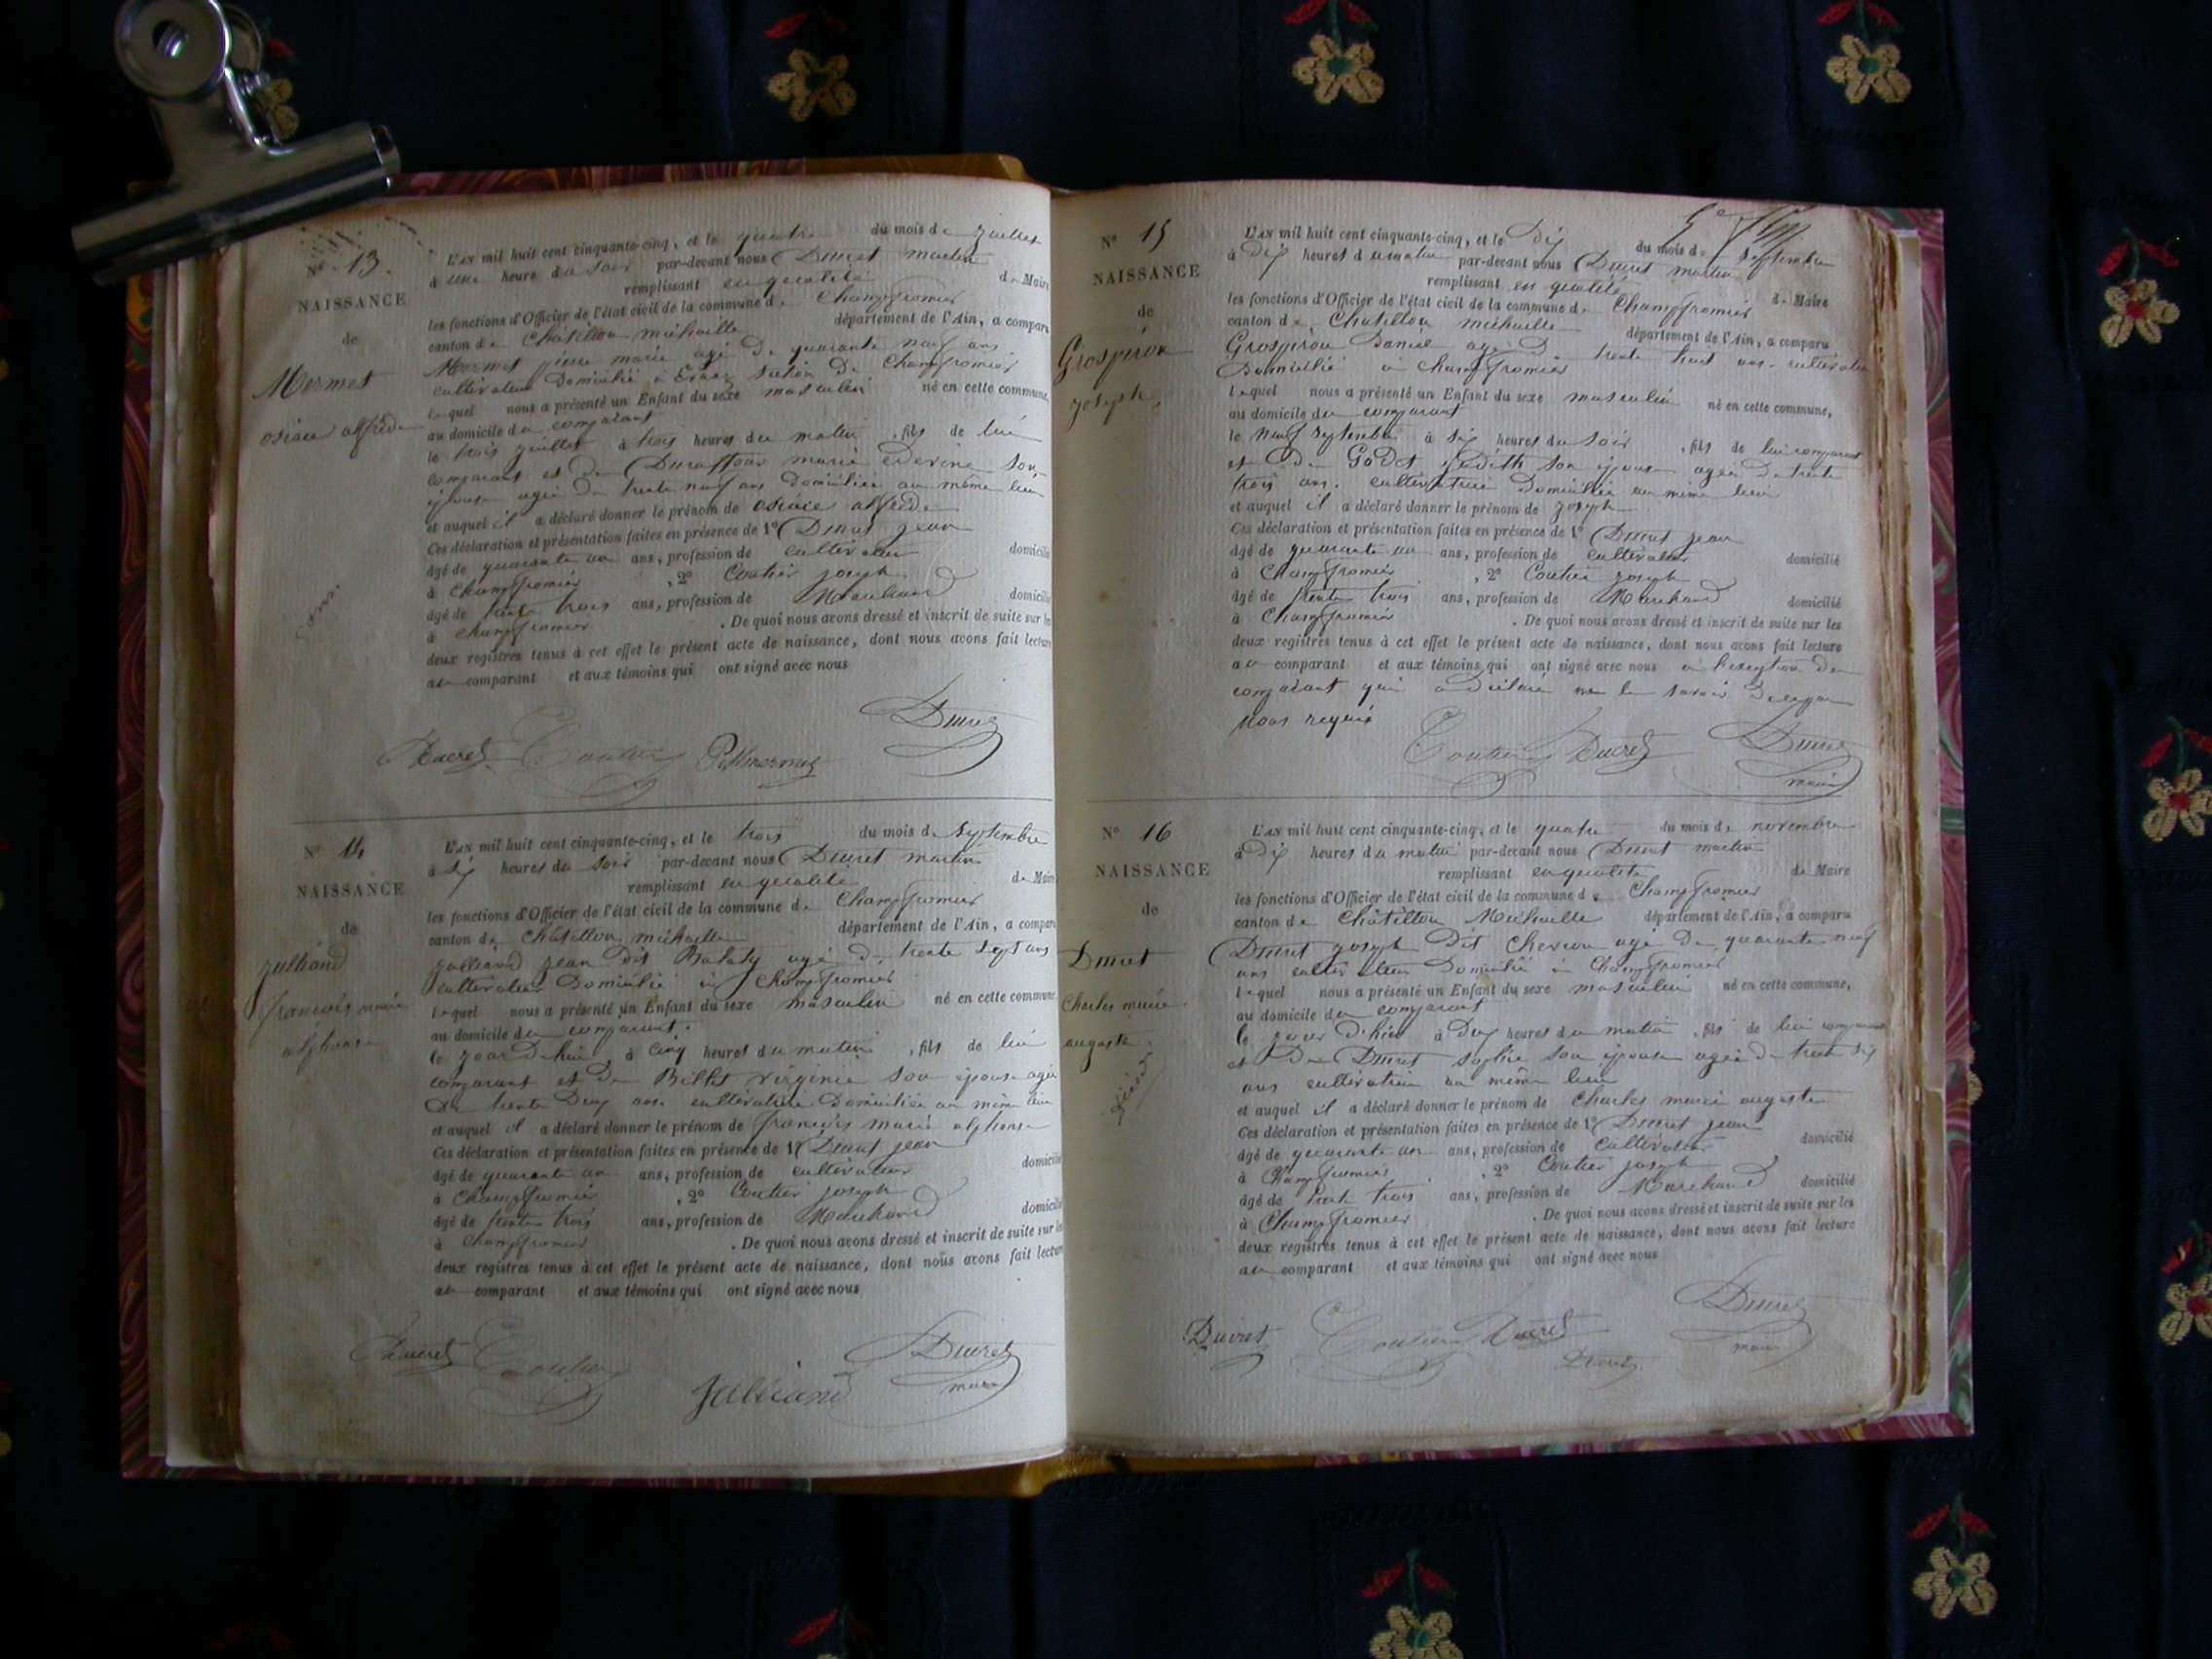 N° 13.
NAISSANCE
de
Mermet
osiace alfred
L'AN mil huit cent cinquante-cinq, et le quatre du mois de juillet
à une heure du soir par-devant nous Ducret martin
remplissant en qualité de Maire
les fonctions d'Officier de l'état civil de la commune de Champfromier
canton de Châtillon michaille département de l'Ain, a comparu
Mermet marie agé de quarante neuf ans
cultivateur Domicilié à section De Champfromier
lequel nous a présenté un Enfant du sexe masculin né en cette commune,
au domicile du comparant
le trois juillet à trois heures du matin, fils de lui
comparant et de Ducaffour marie son
épouse agée De trente neuf ans Domiciliée au même lieu
et auquel il a déclaré donner le prénom de osiace alfred
Ces déclaration et présentation faites en présence de 1° Ducret jean
âgé de quarante un ans, profession de cultivateur domicilié
à Champfromier, 2° Coutier joseph
âgé de trente trois ans, profession de Marchand domicilié
à Champfromier. De quoi nous avons dressé et inscrit de suite sur les
deux registres tenus à cet effet le présent acte de naissance, dont nous avons fait lecture
au comparant et aux témoins qui ont signé avec nous
Ducret
Ducret Coutier Mermet
N° 14
NAISSANCE
de
julliand
francois marie
alphonse
L'AN mil huit cent cinquante-cinq, et le trois du mois de septembre
à six heures du soir par-devant nous Ducret martin
remplissant en qualité de Maire
les fonctions d'Officier de l'état civil de la commune de Champfromier
canton de Châtillon michaille département de l'Ain, a comparu
julliand jean dit agé de trente sept ans
cultivateur Domicilié à Champfromier
lequel nous a présenté un Enfant du sexe masculin né en cette commune,
au domicile du comparant.
le jour d'hui à cinq heures du matin, fils de lui
comparant et De Billet virginie son épouse agée
De trente Deux ans. cultivatrice Domiciliée au même lieu
et auquel il a déclaré donner le prénom de francois marie alphonse
Ces déclaration et présentation faites en présence de 1° Ducret jean
âgé de quarante un ans, profession de cultivateur domicilié
à Champfromier, 2° Coutier joseph
âgé de trente trois ans, profession de Marchand domicilié
à Champfromier. De quoi nous avons dressé et inscrit de suite sur les
deux registres tenus à cet effet le présent acte de naissance, dont nous avons fait lecture
au comparant et aux témoins qui ont signé avec nous
Ducret Coutier Julliand Ducret
maire
N° 15
NAISSANCE
de
Grospiron
joseph
L'AN mil huit cent cinquante-cinq, et le Dix du mois de septembre
à Dix heures du matin par-devant nous Ducret martin
remplissant en qualité de Maire
les fonctions d'Officier de l'état civil de la commune de Champfromier
canton de Chatillon michaille département de l'Ain, a comparu
Grospiron Daniel agé De trente huit ans. cultivateur
Domicilié à Champfromier
lequel nous a présenté un Enfant du sexe masculin né en cette commune,
au domicile du comparant
le neuf septembre à six heures du soir, fils de lui comparant
et De Godet son épouse agée De trente
trois ans. cultivatrice Domiciliée au même lieu
et auquel il a déclaré donner le prénom de joseph
Ces déclaration et présentation faites en présence de 1° Ducret jean
âgé de quarante un ans, profession de cultivateur domicilié
à Champfromier, 2° Coutier joseph
âgé de trente trois ans, profession de Marchand domicilié
à Champfromier. De quoi nous avons dressé et inscrit de suite sur les
deux registres tenus à cet effet le présent acte de naissance, dont nous avons fait lecture
au comparant et aux témoins qui ont signé avec nous à l'exception du
comparant qui a Déclaré ne le savoir De ce par
nous requis
Coutier Ducret Ducret
maire
N° 16
NAISSANCE
de
Ducret
Charles marie
auguste
L'AN mil huit cent cinquante-cinq, et le quatre du mois de novembre
à Dix heures du matin par-devant nous Ducret martin
remplissant en qualité de Maire
les fonctions d'Officier de l'état civil de la commune de Champfromier
canton de Châtillon Michaille département de l'Ain, a comparu
Ducret joseph Dit agé De quarante neuf
ans cultivateur Domicilié à Champfromier
lequel nous a présenté un Enfant du sexe masculin né en cette commune,
au domicile du comparant
le jour d'hier à Dix heures du matin, fils de lui comparant
et De Ducret sophie son épouse agée De trente six
ans cultivatrice au même lieu
et auquel il a déclaré donner le prénom de Charles marie auguste
Ces déclaration et présentation faites en présence de 1° Ducret jean
âgé de quarante un ans, profession de cultivateur domicilié
à Champfromier, 2° Coutier joseph
âgé de trente trois ans, profession de Marchand domicilié
à Champfromier. De quoi nous avons dressé et inscrit de suite sur les
deux registres tenus à cet effet le présent acte de naissance, dont nous avons fait lecture
au comparant et aux témoins qui ont signé avec nous
Ducret Coutier Ducret Ducret
maire